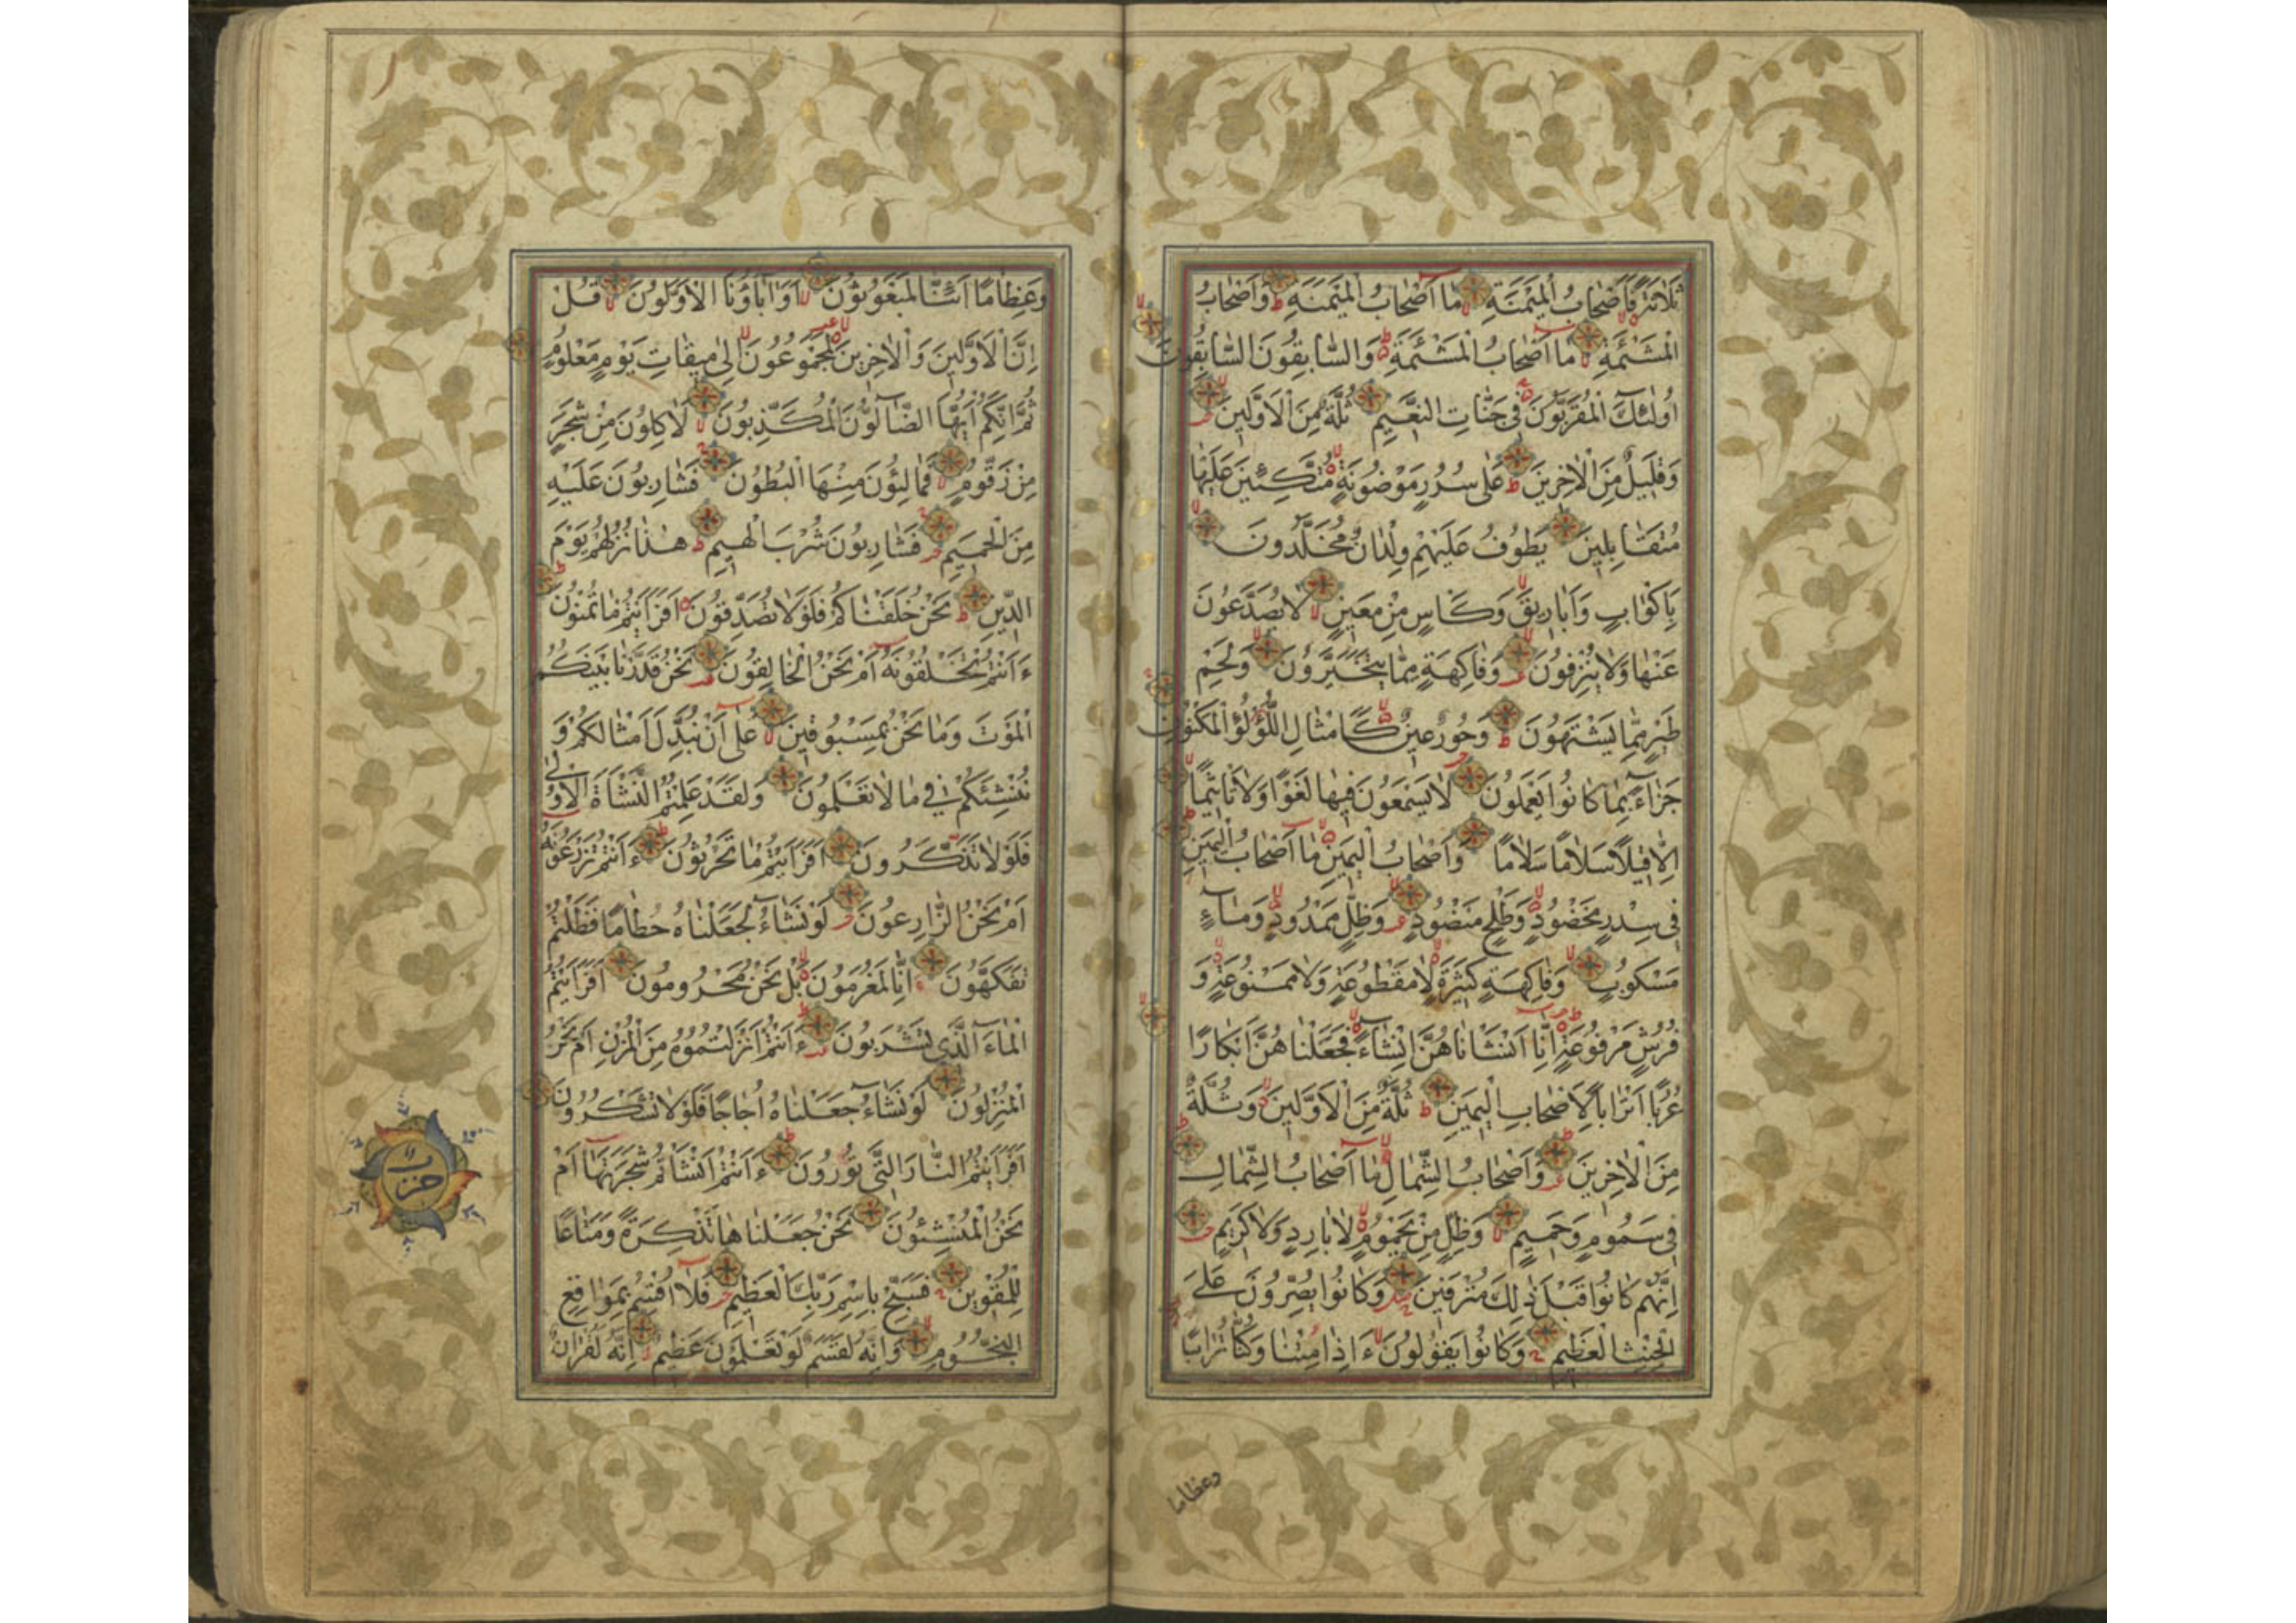 ثَلٰثَةً فَاَصْحَابُ الْمَيْمَنَةِ مَا اَصْحَابُ الْمَيْمَنَةِ وَاَصْحَابُ
الْمَشْئَمَةِ مَا اَصْحَابُ الْمَشْئَمَةِ وَالسَّابِقُونَ السَّابِقُونَ
اُولٰئِكَ الْمُقَرَّبُونَ فِي جَنَّاتِ النَّعِيمِ ثُلَّةٌ مِنَ الْاَوَّلِينَ
وَقَلِيلٌ مِنَ الْاٰخِرِينَ عَلٰى سُرُرٍ مَوْضُونَةٍ مُتَّكِئِينَ عَلَيْهَا
مُتَقَابِلِينَ يَطُوفُ عَلَيْهِمْ وِلْدَانٌ مُخَلَّدُونَ
بِاَكْوَابٍ وَاَبَارِيقَ وَكَاْسٍ مِنْ مَعِينٍ لَا يُصَدَّعُونَ
عَنْهَا وَلَا يُنْزِفُونَ وَفَاكِهَةٍ مِمَّا يَتَخَيَّرُونَ وَلَحْمِ
طَيْرٍ مِمَّا يَشْتَهُونَ وَحُورٌ عِينٌ كَاَمْثَالِ اللُّؤْلُؤِ الْمَكْنُونِ
جَزَاءً بِمَا كَانُوا يَعْمَلُونَ لَا يَسْمَعُونَ فِيهَا لَغْوًا وَلَا تَاْثِيمًا
اِلَّا قِيلًا سَلَامًا سَلَامًا وَاَصْحَابُ الْيَمِينِ مَا اَصْحَابُ الْيَمِينِ
فِي سِدْرٍ مَخْضُودٍ وَطَلْحٍ مَنْضُودٍ وَظِلٍّ مَمْدُودٍ وَمَاءٍ
مَسْكُوبٍ وَفَاكِهَةٍ كَثِيرَةٍ لَا مَقْطُوعَةٍ وَلَا مَمْنُوعَةٍ وَ
فُرُشٍ مَرْفُوعَةٍ اِنَّا اَنْشَاْنَاهُنَّ اِنْشَاءً فَجَعَلْنَاهُنَّ اَبْكَارًا
عُرُبًا اَتْرَابًا لِاَصْحَابِ الْيَمِينِ ثُلَّةٌ مِنَ الْاَوَّلِينَ وَثُلَّةٌ
مِنَ الْاٰخِرِينَ وَاَصْحَابُ الشِّمَالِ مَا اَصْحَابُ الشِّمَالِ
فِي سَمُومٍ وَحَمِيمٍ وَظِلٍّ مِنْ يَحْمُومٍ لَا بَارِدٍ وَلَا كَرِيمٍ
اِنَّهُمْ كَانُوا قَبْلَ ذٰلِكَ مُتْرَفِينَ وَكَانُوا يُصِرُّونَ عَلَى
الْحِنْثِ الْعَظِيمِ وَكَانُوا يَقُولُونَ ءَاِذَا مِتْنَا وَكُنَّا تُرَابًا
وعظاما
وَعِظَامًا اَئِنَّا لَمَبْعُوثُونَ اَوَاٰبَاؤُنَا الْاَوَّلُونَ قُلْ
اِنَّ الْاَوَّلِينَ وَالْاٰخِرِينَ لَمَجْمُوعُونَ اِلٰى مِيقَاتِ يَوْمٍ مَعْلُومٍ
ثُمَّ اِنَّكُمْ اَيُّهَا الضَّالُّونَ الْمُكَذِّبُونَ لَاٰكِلُونَ مِنْ شَجَرٍ
مِنْ زَقُّومٍ فَمَالِئُونَ مِنْهَا الْبُطُونَ فَشَارِبُونَ عَلَيْهِ
مِنَ الْحَمِيمِ فَشَارِبُونَ شُرْبَ الْهِيمِ هٰذَا نُزُلُهُمْ يَوْمَ
الدِّينِ نَحْنُ خَلَقْنَاكُمْ فَلَوْلَا تُصَدِّقُونَ اَفَرَاَيْتُمْ مَا تُمْنُونَ
ءَاَنْتُمْ تَخْلُقُونَهُ اَمْ نَحْنُ الْخَالِقُونَ نَحْنُ قَدَّرْنَا بَيْنَكُمُ
الْمَوْتَ وَمَا نَحْنُ بِمَسْبُوقِينَ عَلٰى اَنْ نُبَدِّلَ اَمْثَالَكُمْ وَ
نُنْشِئَكُمْ فِي مَا لَا تَعْلَمُونَ وَلَقَدْ عَلِمْتُمُ النَّشْاَةَ الْاُولٰى
فَلَوْلَا تَذَكَّرُونَ اَفَرَاَيْتُمْ مَا تَحْرُثُونَ ءَاَنْتُمْ تَزْرَعُونَهُ
اَمْ نَحْنُ الزَّارِعُونَ لَوْ نَشَاءُ لَجَعَلْنَاهُ حُطَامًا فَظَلْتُمْ
تَفَكَّهُونَ اِنَّا لَمُغْرَمُونَ بَلْ نَحْنُ مَحْرُومُونَ اَفَرَاَيْتُمُ
الْمَاءَ الَّذِي تَشْرَبُونَ ءَاَنْتُمْ اَنْزَلْتُمُوهُ مِنَ الْمُزْنِ اَمْ نَحْنُ
الْمُنْزِلُونَ لَوْ نَشَاءُ جَعَلْنَاهُ اُجَاجًا فَلَوْلَا تَشْكُرُونَ
اَفَرَاَيْتُمُ النَّارَ الَّتِي تُورُونَ ءَاَنْتُمْ اَنْشَاْتُمْ شَجَرَتَهَا اَمْ
نَحْنُ الْمُنْشِئُونَ نَحْنُ جَعَلْنَاهَا تَذْكِرَةً وَمَتَاعًا
لِلْمُقْوِينَ فَسَبِّحْ بِاسْمِ رَبِّكَ الْعَظِيمِ فَلَا اُقْسِمُ بِمَوَاقِعِ
النُّجُومِ وَاِنَّهُ لَقَسَمٌ لَوْ تَعْلَمُونَ عَظِيمٌ اِنَّهُ لَقُرْاٰنٌ
حزب